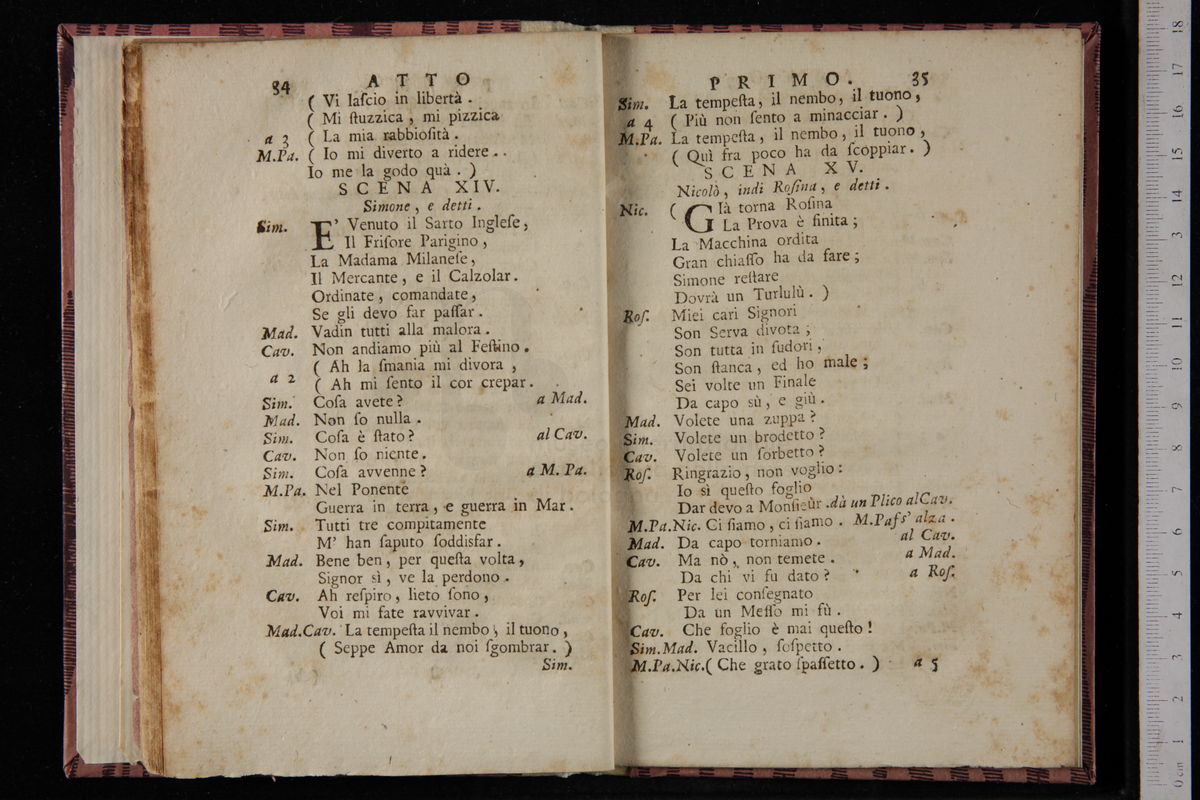 34 ATTO
( Vi laſcio in libertà .
( Mi ſtuzzica , mi pizzica
a 3 ( La mia rabbioſità .
M.Pa. ( Io mi diverto a ridere ..
Io me la godo quà . )
SCENA XIV.
Simone , e detti .
Sim. E' Venuto il Sarto Ingleſe ,
Il Friſore Parigino ,
La Madama Milaneſe ,
Il Mercante , e il Calzolar .
Ordinate , comandate ,
Se gli devo far paſſar .
Mad. Vadin tutti alla malora .
Cav. Non andiamo più al Feſtino .
( Ah la ſmania mi divora ,
a 2 ( Ah mi ſento il cor crepar .
Sim. Coſa avete ? a Mad.
Mad. Non ſo nulla .
Sim. Coſa è ſtato ? al Cav.
Cav. Non ſo niente .
Sim. Coſa avvenne ? a M. Pa.
M.Pa. Nel Ponente
Guerra in terra , e guerra in Mar .
Sim. Tutti tre compitamente
M' han ſaputo ſoddisfar .
Mad. Bene ben , per queſta volta ,
Signor sì , ve la perdono .
Cav. Ah reſpiro , lieto ſono ,
Voi mi fate ravvivar .
Mad.Cav. La tempeſta il nembo , il tuono ,
( Seppe Amor da noi ſgombrar . )
Sim.
PRIMO. 35
Sim. La tempeſta , il nembo , il tuono ,
a 4 ( Più non ſento a minacciar . )
M.Pa. La tempeſta , il nembo , il tuono ,
( Quì fra poco ha da ſcoppiar . )
SCENA XV.
Nicolò , indi Roſina , e detti .
Nic. ( Già torna Roſina
La Prova è finita ;
La Macchina ordita
Gran chiaſſo ha da fare ;
Simone reſtare
Dovrà un Turlulù . )
Roſ. Miei cari Signori
Son Serva divota ;
Son tutta in ſudori ,
Son ſtanca , ed ho male ;
Sei volte un Finale
Da capo sù , e giù .
Mad. Volete una zuppa ?
Sim. Volete un brodetto ?
Cav. Volete un ſorbetto ?
Roſ. Ringrazio , non voglio :
Io sì queſto foglio
Dar devo a Monſieùr . dà un Plico al Cav.
M.Pa.Nic. Ci ſiamo , ci ſiamo . M.Paſs' alza .
Mad. Da capo torniamo . al Cav.
Cav. Ma nò , non temete . a Mad.
Da chi vi fu dato ? a Roſ.
Roſ. Per lei conſegnato
Da un Meſſo mi fù .
Cav. Che foglio è mai queſto !
Sim.Mad. Vacillo , ſoſpetto .
M.Pa.Nic. ( Che grato ſpaſſetto . ) a 5
18
17
16
15
14
13
12
11
10
9
8
7
6
5
4
3
2
1
0 cm